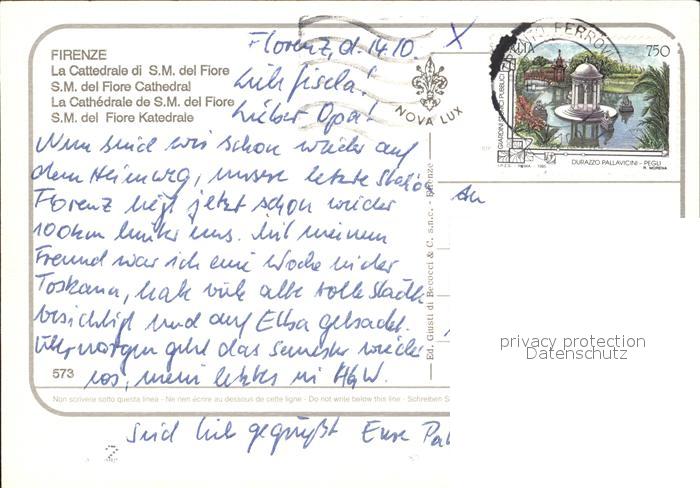 FIRENZE
La Cattedrale di S.M. del Fiore
S.M. del Fiore Cathedral
La Cathédrale de S.M. del Fiore
S.M. del Fiore Katedrale
Florenz, d. 14.10
X
Liebe Gisela!
Lieber Opa!
Nun sind wir schon wieder auf
dem Heimweg, unsere letzte Station
Florenz liegt jetzt schon wieder
100km hinter uns. Mit meinem
Freund war ich eine Woche in der
Toskana, hab viele alte tolle Städte
besichtigt und auf Elba gebadet.
Übermorgen geht das Semester wieder
los, mein letztes in HGW.
Seid lieb gegrüßt Eure
573
Non scrivere sotto questa linea - Ne rien écrire au dessous de cette ligne - Do not write below this line - Schreiben S
NOVA LUX
Ed. Giusti di Becocci & C. s.n.c. - Firenze
An
ITALIA
750
GIARDINI STORICI PUBBLICI
DURAZZO PALLAVICINI - PEGLI
R. MORENA
I.P.Z.S. - ROMA - 1995
FERROV
privacy protection
Datenschutz